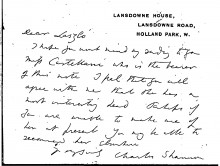 LANSDOWNE HOUSE,
LANSDOWNE ROAD,
HOLLAND PARK, W.
Dear Laszlo
I hope you won't mind my sending to you
Miss Castellani who is the bearer
of this note I feel that you will
agree with me that she has a
most interesting head Perhaps if
you are unable to make use of
her at present you may be able to
recommend her elsewhere
Yours Sincy Charles Shannon